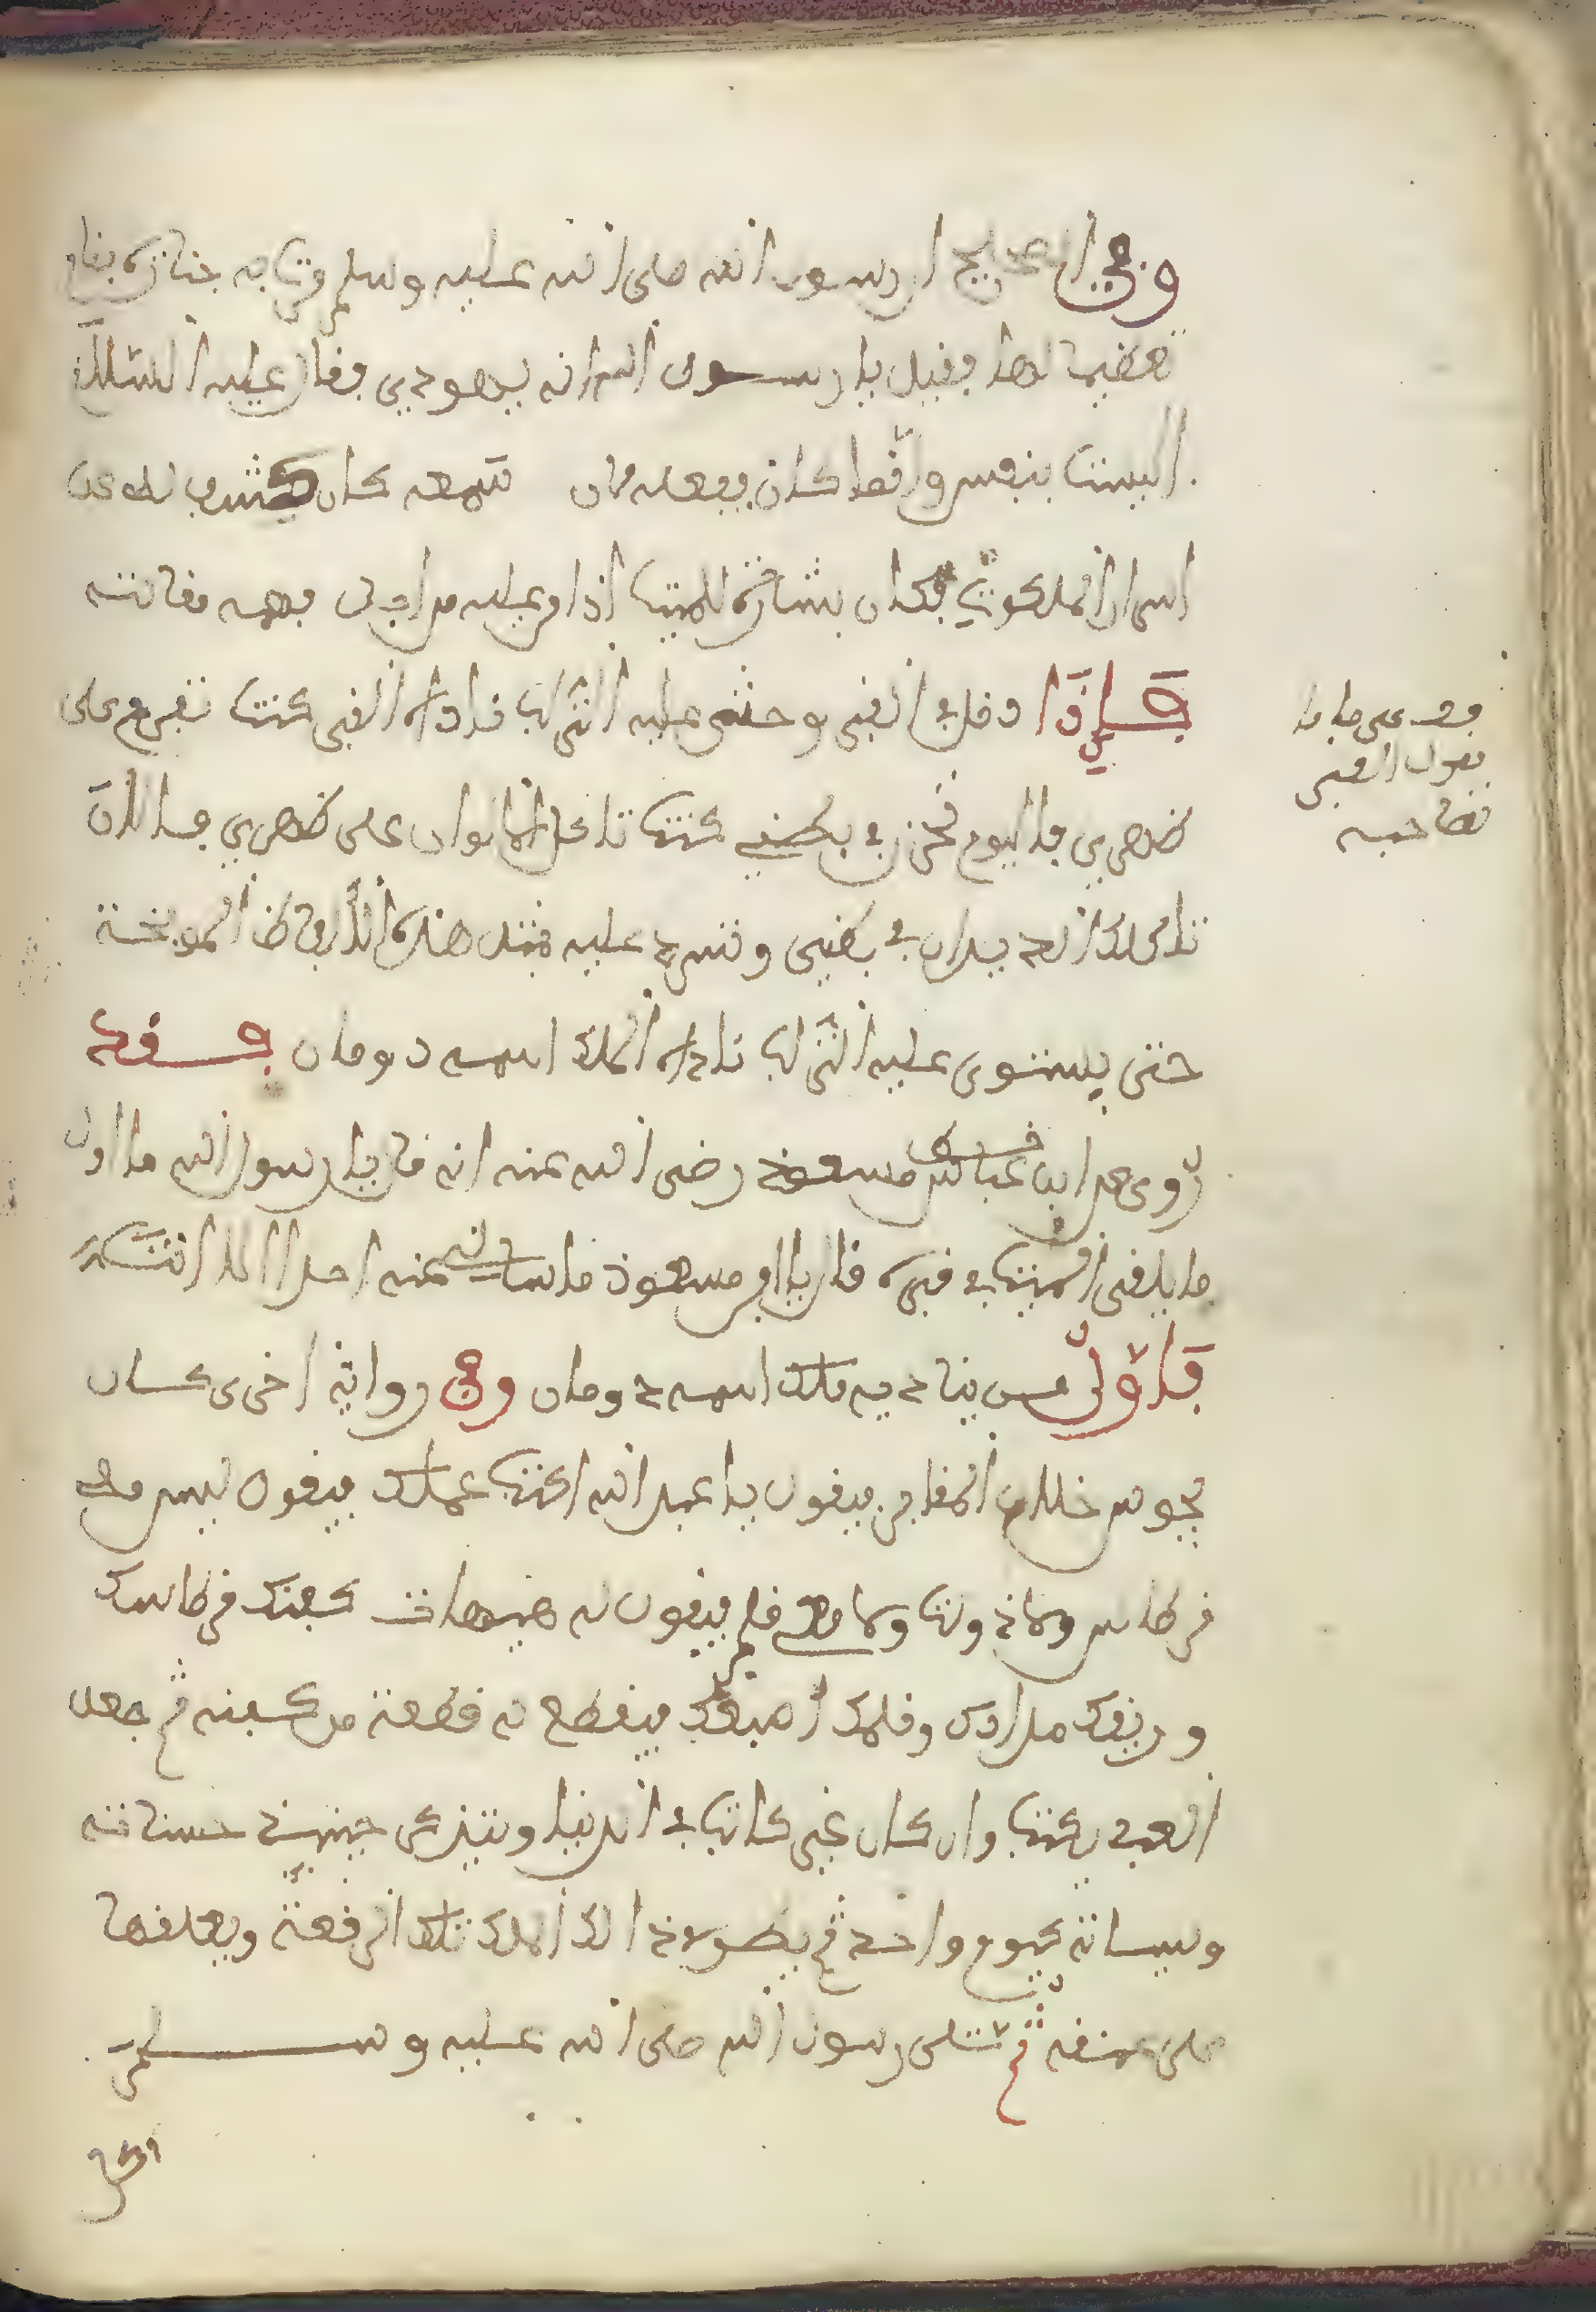 وفي الصحيح ان رسول الله صلى الله عليه وسلم مرت به جنازة فقام
تعظيما لها فقيل يا رسول الله انه يهودي فقال عليه السلام
اليست بنفس وانما كان يفعله من سمعه كان كشف له عن
اسرار الملكوت فكان بشارة للميت اذا مر عليه من اجل فهمه مقالته
فإذا دخل في القبر وحثى عليه التراب ناداه القبر كنت تفرح على
ظهري فاليوم تحزن في بطني كنت تاكل الالوان على ظهري فالان
تاكلك الديدان في بطني وتسرد عليه مثل هذه الالفاظ الموبخة
حتى يستوي عليه التراب ناداه الملك اسمه دومان فقد
روي عن ابن مسعود رضي الله عنه انه قال يا رسول الله ما اول
ما يلقى الميت في قبره قال يا ابن مسعود ما سالني عنه احد الا انت
فاول من يناديه ملك اسمه دومان وفي رواية اخرى كان
يجوس خلال المقابر فيقول يا عبد الله اكتب عملك فيقول ليس معي
قرطاس ولا دوات ولا معي قلم فيقول له هيهات كفنك قرطاسك
وريقك مدادك وقلمك اصبعك فيقطع له قطعة من كفنه ثم جعل
العبد يكتب وان كان غير كاتب في الدنيا ويتذكر حينئذ حسناته
وسيئاته كيوم واحد ثم يطوي ذالك الملك تلك الرقعة ويعلقها
على عنقه ثم تلى رسول الله صلى الله عليه وسلم
قف على ما
يقول القبر
لصاحبه